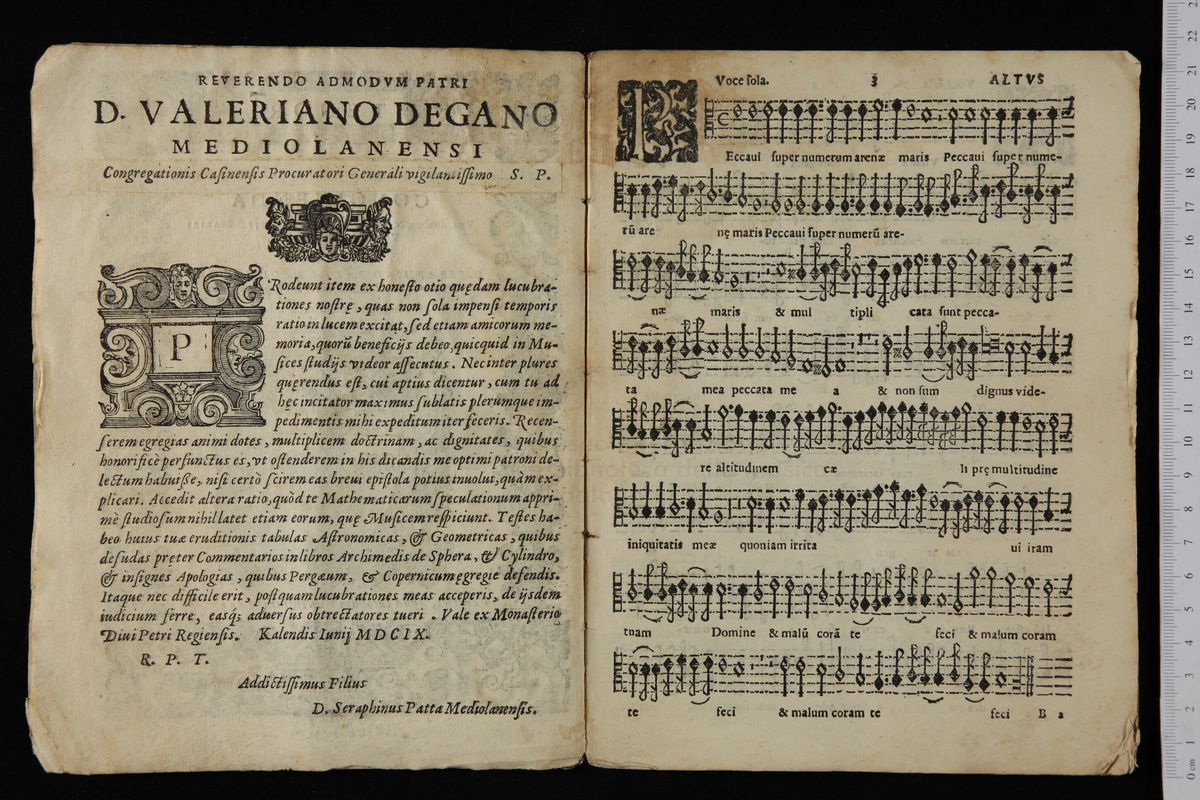 REVERENDO ADMODVM PATRI
D. VALERIANO DEGANO
MEDIOLANENSI
Congregationis Casinensis Procuratori Generali vigilantissimo S. P.
P
Rodeunt item ex honesto otio quędam lucubra-
tiones nostrę, quas non sola impensi temporis
ratio in lucem excitat, sed etiam amicorum me-
moria, quorū beneficijs debeo, quicquid in Mu-
sices studijs videor assecutus. Nec inter plures
quęrendus est, cui aptius dicentur, cum tu ad
hęc incitator maximus sublatis plerumque im-
pedimentis mihi expeditum iter feceris. Recen-
serem egregias animi dotes, multiplicem doctrinam, ac dignitates, quibus
honorificè perfunctus es, vt ostenderem in his dicandis me optimi patroni de-
lectum habuisse, nisi certò scirem eas breui epistola potius inuolui, quàm ex-
plicari. Accedit altera ratio, quòd te Mathematicarum speculationum appri-
mè studiosum nihil latet etiam eorum, quę Musicem respiciunt. Testes ha-
beo huius tuæ eruditionis tabulas Astronomicas, & Geometricas, quibus
desudas pręter Commentarios in libros Archimedis de Sphera, & Cylindro,
& insignes Apologias, quibus Pergæum, & Copernicum ęgregie defendis.
Itaque nec difficile erit, postquam lucubrationes meas acceperis, de ijsdem
iudicium ferre, easq; aduersus obtrectatores tueri. Vale ex Monasterio
Diui Petri Regiensis. Kalendis Iunij MDCIX.
R. P. T.
Addictissimus Filius
D. Seraphinus Patta Mediolanensis.
Voce sola. 3 ALTVS
Eccaui super numerum arenæ maris Peccaui super nume-
rū are nę maris Peccaui super numerū are-
næ maris & mul tipli cata sunt pecca-
ta mea peccata me a & non sum dignus vide-
re altitudinem cæ li prę multitudine
iniquitatis meæ quoniam irrita ui iram
tuam Domine & malū corā te feci & malum coram
te feci & malum coram te feci B a